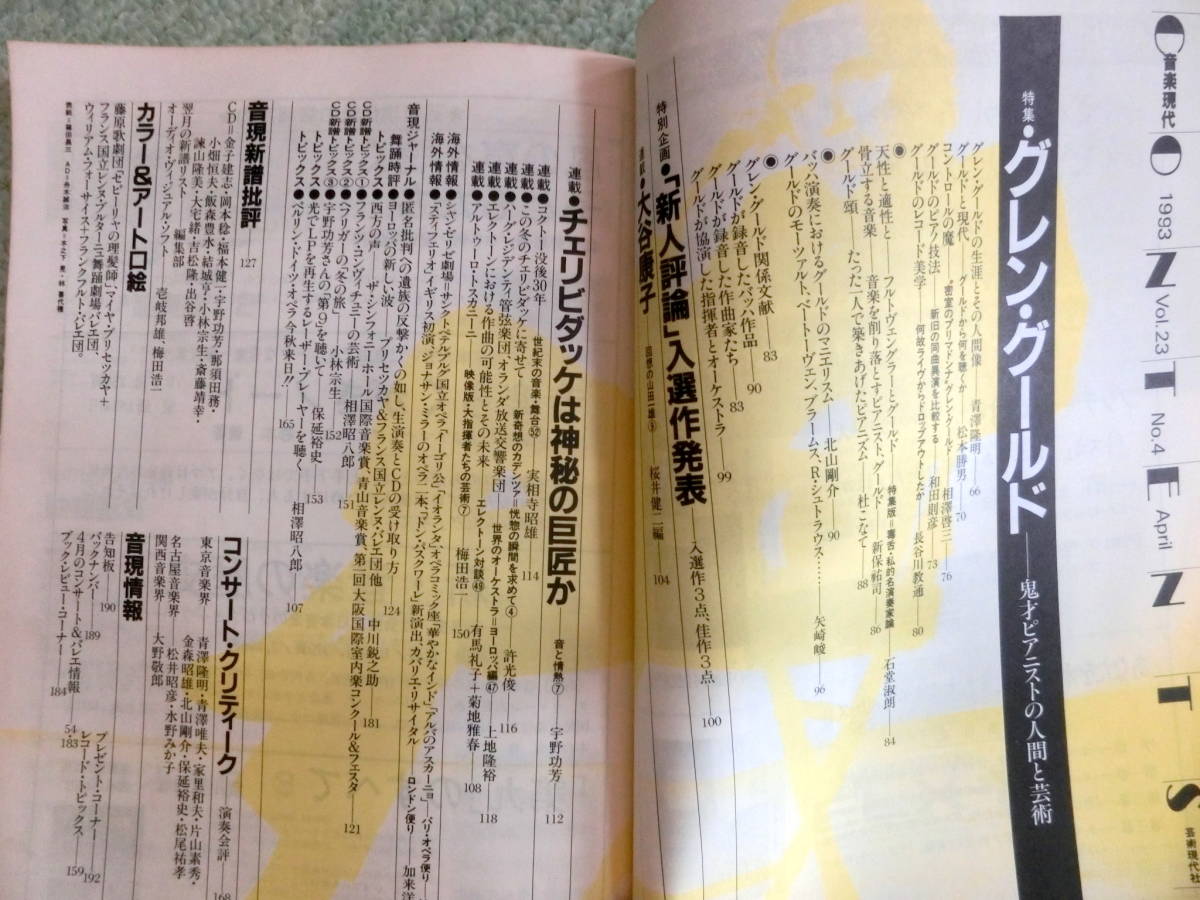 音楽現代
1993 Vol.23 No.4 April
CONTENTS
芸術現代社
特集・グレン・グールド——鬼才ピアニストの人間と芸術
グレン・グールドの生涯とその人間像 青澤隆明 66
グールドと現代 グールドから何を聴くか 松本勝男 70
コントロールの魔 “密室のプリマドンナ”グレン・グールド 相澤啓三 76
グールドのピアノ技法 新旧の同曲異演を比較する 和田則彦 73
グールドのレコード美学 何故ライヴからドロップアウトしたか 長谷川教通 80
●特集版=毒舌・私的名演奏家論
天性と適性と フルトヴェングラーとグールド 石堂淑朗 84
骨立する音楽 音楽を削り落とすピアニスト、グールド 新保祐司 86
グールド頌 たった一人で築きあげたピアニズム 杜こなて 88
●
バッハ演奏におけるグールドのマニエリスム 北山剛介 90
グールドのモーツァルト、ベートーヴェン、ブラームス、R・シュトラウス…… 矢崎峻 96
●
グレン・グールド関係文献 83
グールドが録音したバッハ作品 90
グールドが録音した作曲家たち 83
グールドが協演した指揮者とオーケストラ 99
特別企画・「新人評論」入選作発表 入選作3点、佳作3点 100
連載・大谷康子 回想の山田一雄⑨ 桜井健二編 104
連載・チェリビダッケは神秘の巨匠か 音と情熱⑦ 宇野功芳 112
連載●コクトー没後30年 世紀末の音楽・舞台52 実相寺昭雄 114
連載●この冬のチェリビダッケに寄せて 新奇想のカデンツァ=恍惚の瞬間を求めて④ 許光俊 116
連載●ハーグ・レジデンティ管弦楽団、オランダ放送交響楽団 世界のオーケストラ=ヨーロッパ編47 上地隆裕 118
連載●エレクトーンにおける作曲の可能性とその未来 エレクトーン対談49 有馬礼子+菊地雅春 108
連載●アルトゥーロ・トスカニーニ 映像版・大指揮者たちの芸術⑦ 梅田浩一 150
海外情報●シャンゼリゼ劇場=サンクトペテルブルグ国立オペラ「イーゴリ公」「イオランタ」オペラコミック座「華やかなインド」「アルバのアスカーニョ」 パリ・オペラ便り
海外情報●「スティフェリオ」イギリス初演、ジョナサン・ミラーのオペラ二本、「ドン・パスクワーレ」新演出、カバリエ・リサイタル ロンドン便り 加来洋
音現ジャーナル●匿名批判への遺族の反撃からの如し、生演奏とCDの受け取り方 中川鋭之助 181
舞踊時評●ヨーロッパの新しい波 プリセツカヤ&フランス国立レンヌ・バレエ団他 124
トピックス●西方の声 ザ・シンフォニーホール国際音楽賞、青山音楽賞、第一回大阪国際室内楽コンクール&フェスタ 121
CD新譜トピックス①●フランツ・コンヴィチュニーの芸術 相澤昭八郎 151
CD新譜トピックス②●フリガーの「冬の旅」 小林宗生 152
CD新譜トピックス③●宇野功芳さんの「第9」を聴いて 保延裕史 153
トピックス●光でLPを再生するレーザー・プレーヤーを聴く 相澤昭八郎 107
トピックス●ベルリン・ドイツ・オペラ今秋来日!! 165
音現新譜批評 127
CD=金子建志・岡本稔・福本健一・宇野功芳・那須田務・小畑恒夫・飯森豊水・結城亨・小林宗生・斎藤靖幸・諫山隆美・大宅緒・吉松隆・出谷啓
翌月の新譜リスト 編集部
オーディオ・ヴィジュアル・ソフト 壱岐邦雄、梅田浩一
カラー&アート口絵
藤原歌劇団「セビーリャの理髪師」、マイヤ・プリセツカヤ+フランス国立レンヌ・ブルターニュ舞踊劇場バレエ団、ウィリアム・フォーサイス+フランクフルト・バレエ団。
コンサート・クリティーク 演奏会評 168
東京音楽界 青澤隆明・青澤唯夫・家里和夫・片山素秀・金森昭雄・北山剛介・保延裕史・松尾祐孝
名古屋音楽界 松井昭彦・水野みか子
関西音楽界 大野敬郎
音現情報
告知板 190
バックナンバー 189
4月のコンサート&バレエ情報 184
ブック・レビュー・コーナー 54・183
プレゼント・コーナー 192
レコード・トピックス 159